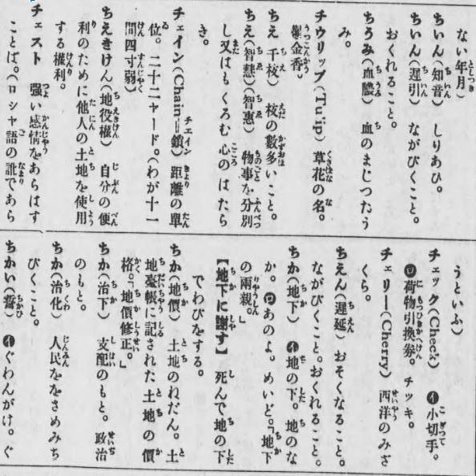 ない年月)
ちいん(知音) しりあひ。
ちいん(遅引) ながびくこと。
おくれること。
ちうみ(血膿) 血のまじつたう
み。
チウリップ(Tulip) 草花の名。
鬱金香。
ちえ 千枝 枝の數多いこと。
ちえ(智慧)(智惠) 物事を分別
し又はもくろむ心のはたら
き。
チェイン(Chain=鎖) 距離の單
位。二十二ヤード。(わが十一
間四寸弱)
ちえきけん(地役權) 自分の便
利のために他人の土地を使用
する權利。
チェスト 强い感情をあらはす
ことば。(ロシヤ語の訛であら
うといふ)
チェック(Check) ㋑小切手。
㋺荷物引換券。チッキ。
チェリー(Cherry) 西洋のみざ
くら。
ちえん(遲延) おそくなること。
ながびくこと。おくれること。
ちか(地下) ㋑地の下。地のな
か。㋺あのよ。めいど。「地下
の兩親。」
【地下に謝す】 死んで地の下
でわびをする。
ちか(地價) 土地のねだん。土
地臺帳に記された土地の價
格。「地價修正。」
ちか(治下) 支配のもと。政治
のもと。
ちか(治化) 人民ををさめみち
びくこと。
ちかい(誓) ㋑ぐわんがけ。ぐ